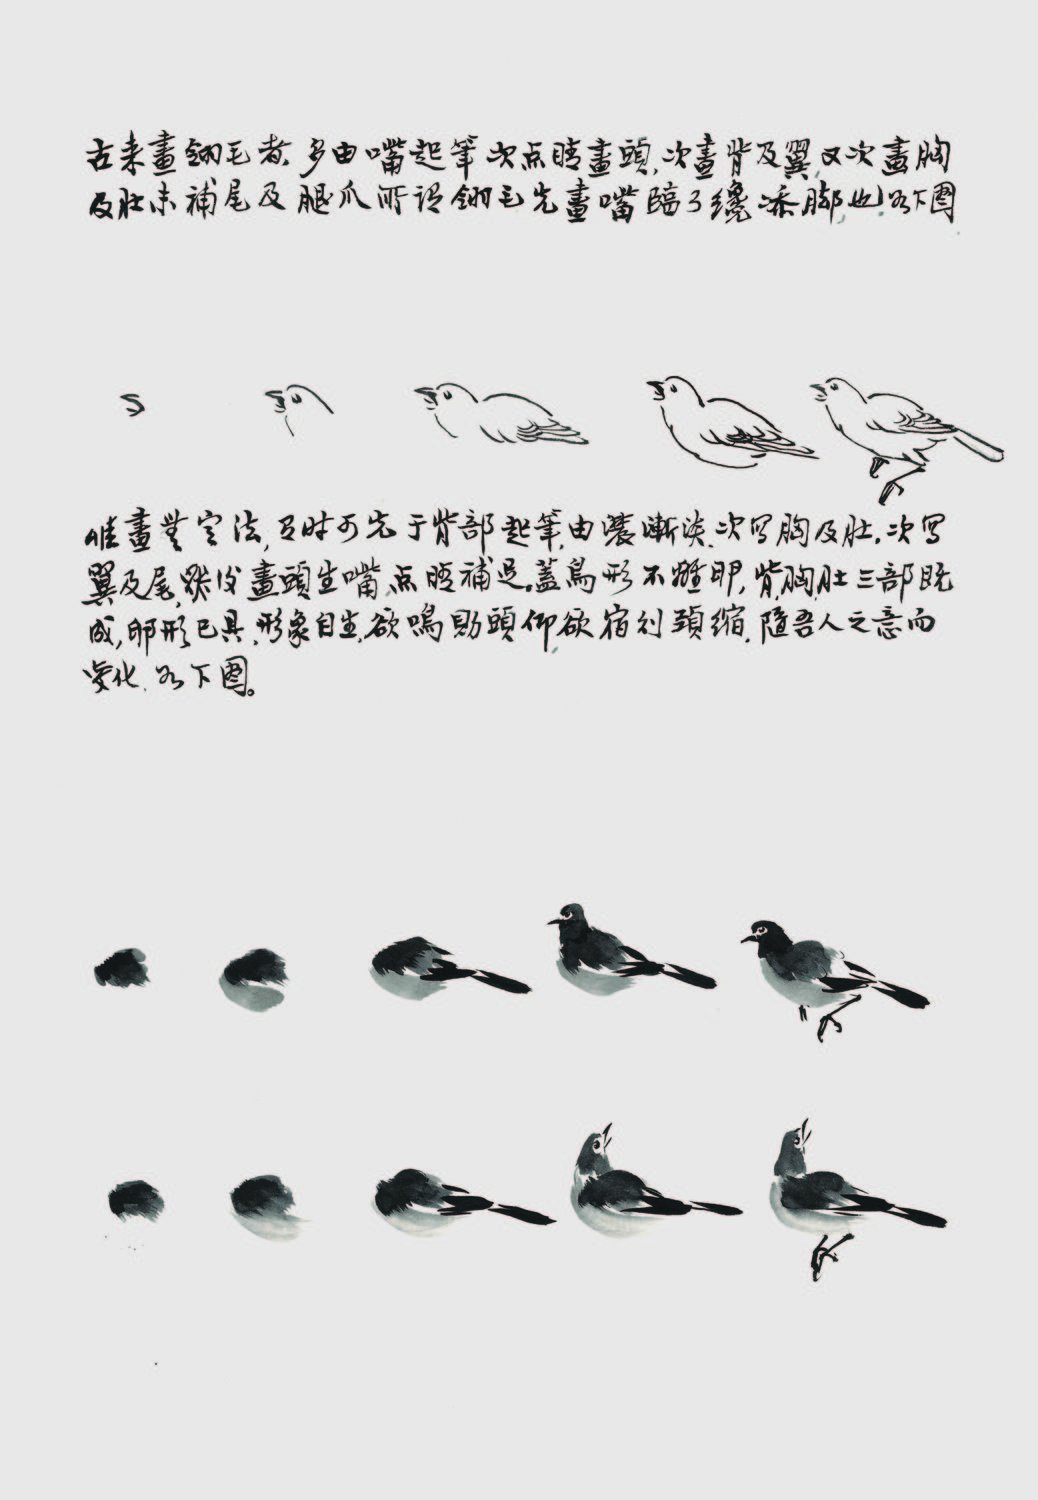 古来畫翎毛者,多由嘴起筆,次点睛畫頭,次畫背及翼,又次畫胸
及肚,末補尾及腿爪,所谓翎毛先畫嘴,臨了纔添脚也。如下图
惟畫無定法,有时可先于背部起筆,由濃漸淡,次写胸及肚,次写
翼及尾,然後畫頭生嘴,点睛補足,蓋鳥形不離卵,背,胸,肚三部既
成,卵形已具,形象自生,欲鳴則頭仰,欲宿则頸缩,隨吾人之意而
变化,如下图。